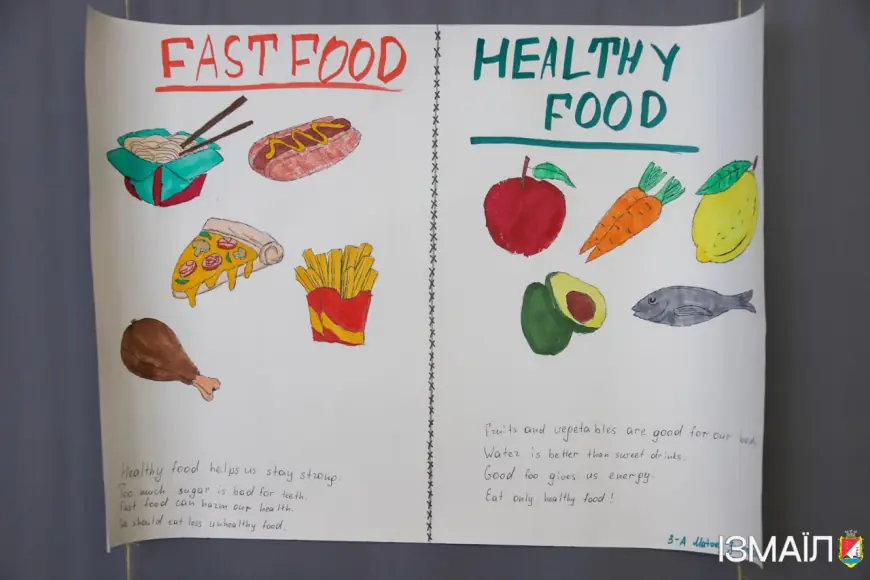 FAST FOOD
HEALTHY
FOOD
Healthy food helps us stay strong.
Too much sugar is bad for teeth.
Fast food can harm our health.
We should eat less unhealthy food.
Fruits and vegetables are good for our
Water is better than sweet drinks.
Good foo gives us energy.
Eat only healthy food!
3-A
ІЗМАЇЛ